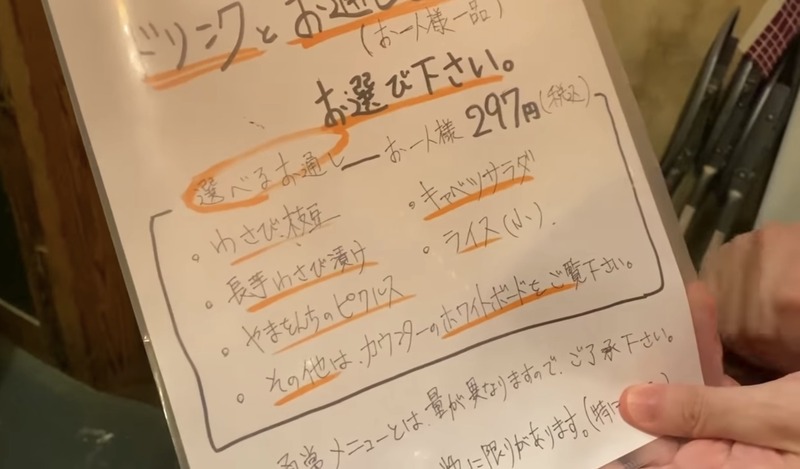 ドリンクとお通し
(お一人様一品)
お選び下さい。
選べるお通し―お一人様297円(税込)
・わさび枝豆
・キャベツサラダ
・長芋わさび漬け
・ライス(小).
・やまもんちのピクルス
・その他は、カウンターのホワイトボードをご覧下さい。
メニューとは、量が異なりますので、ご了承下さい。
に限りがあります。(特に